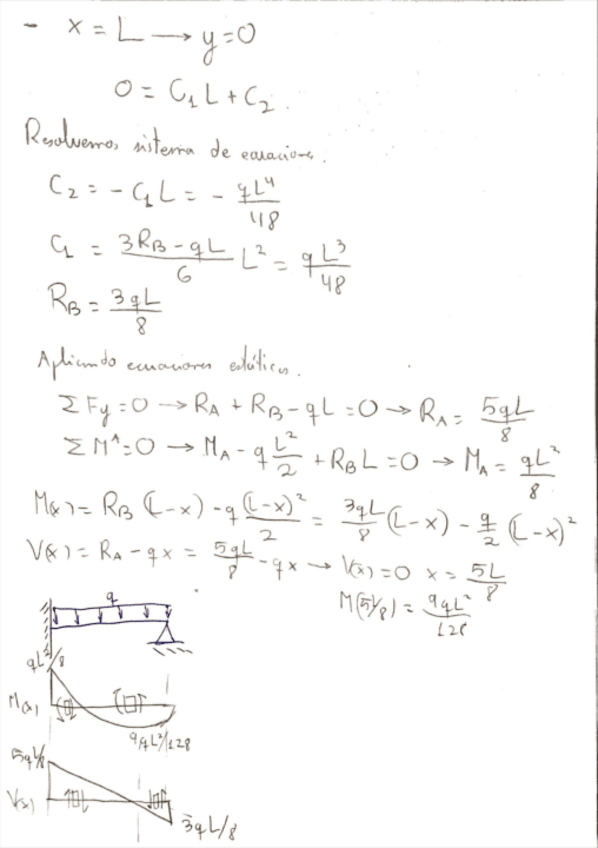 - x = L → y=0
0 = C₁ L + C₂.
Resolvemos sistema de ecuaciones.
C₂ = - C₁ L = - qL⁴/48
C₁ = (3R_B - qL)/6 L² = q L³/48
R_B = 3qL/8
Aplicando ecuaciones estáticas.
ΣFy = 0 → R_A + R_B - qL = 0 → R_A = 5qL/8
ΣM^A = 0 → M_A - q L²/2 + R_B L = 0 → M_A = qL²/8
M(x) = R_B (L-x) - q (L-x)²/2 = 3qL/8 (L-x) - q/2 (L-x)²
V(x) = R_A - qx = 5qL/8 - qx → V(x) = 0 x = 5L/8
M(5L/8) = 9qL²/128
q
qL²/8
M(x)
9qL²/128
5qL/8
V(x)
3qL/8